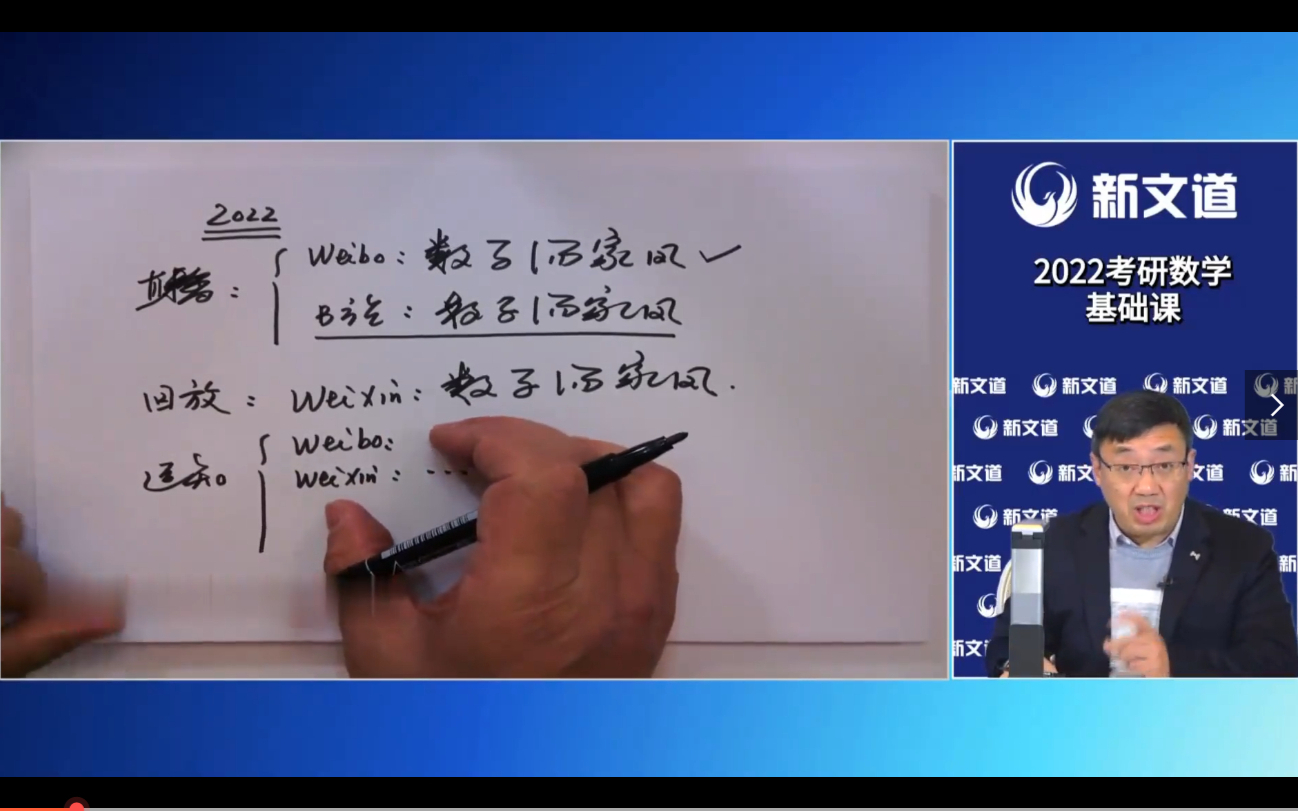 2022
直播:
Weibo: 数学汤家凤
B站: 数学汤家凤
回放: Weixin: 数学汤家凤.
通知
Weibo:
Weixin: ...
新文道
2022考研数学
基础课
新文道 新文道 新文道
新文道 新文道
新文道 新文道
新文道 新文道
新文道
新文道